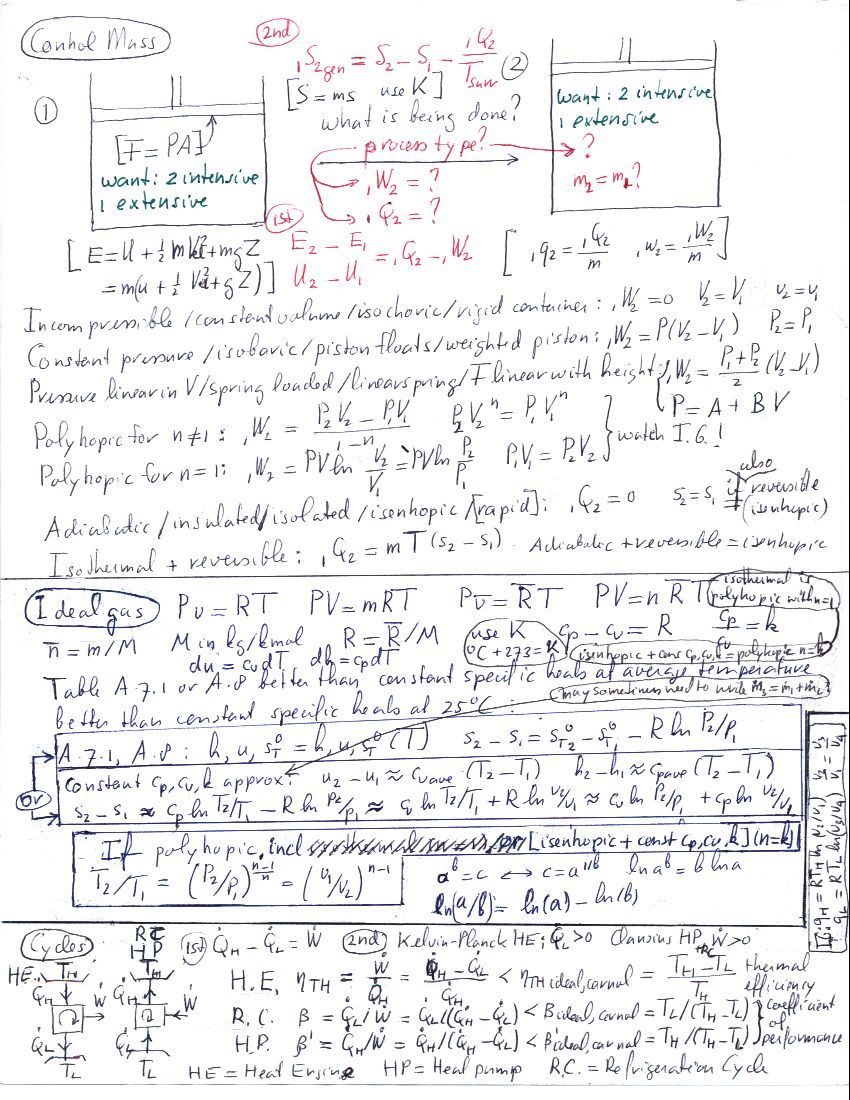 Control Mass
2nd
₁S₂gen = S₂ − S₁ − ₁Q₂/Tsurr
[S = ms use K]
what is being done?
process type?
₁W₂ = ?
₁Q₂ = ?
①
[F = PA]
want: 2 intensive
1 extensive
②
want: 2 intensive
1 extensive
?
m₂ = m₁?
[E = U + ½ m Vel² + mgZ
= m(u + ½ Vel² + gZ)]
1st
E₂ − E₁
U₂ − U₁ = ₁Q₂ − ₁W₂
[₁q₂ = ₁Q₂/m ₁w₂ = ₁W₂/m]
Incompressible/constant volume/isochoric/rigid container: ₁W₂ = 0 V₂ = V₁ v₂ = v₁
Constant pressure/isobaric/piston floats/weighted piston: ₁W₂ = P(V₂ − V₁) P₂ = P₁
Pressure linear in V/spring loaded/linear spring/F linear with height: ₁W₂ = (P₁ + P₂)/2 (V₂ − V₁)
P = A + BV
Polytropic for n ≠ 1: ₁W₂ = (P₂V₂ − P₁V₁)/(1 − n) P₂V₂ⁿ = P₁V₁ⁿ
Polytropic for n = 1: ₁W₂ = PV ln V₂/V₁ = PV ln P₂/P₁ P₁V₁ = P₂V₂
} watch I.G.!
Adiabatic/insulated/isolated/isentropic/[rapid]: ₁Q₂ = 0 s₂ = s₁ if also reversible (isentropic)
Isothermal + reversible: ₁Q₂ = mT(s₂ − s₁) Adiabatic + reversible = isentropic
Ideal gas Pv = RT PV = mRT Pv̄ = R̄T PV = nR̄T
isothermal is
polytropic with n=1
n̄ = m/M M in kg/kmol R = R̄/M
use K
°C + 273 = K
cp − cv = R cp/cv = k
du = cv dT dh = cp dT
isentropic + const cp, cv, k = polytropic n=k
Table A.7.1 or A.8 better than constant specific heats at average temperature
better than constant specific heats at 25°C
may sometimes need to write ṁ₃ = ṁ₁ + ṁ₂
A.7.1, A.8: h, u, s°T = h, u, s°T (T) s₂ − s₁ = s°T₂ − s°T₁ − R ln P₂/P₁
or
Constant cp, cv, k approx: u₂ − u₁ ≈ cv ave (T₂ − T₁) h₂ − h₁ ≈ cp ave (T₂ − T₁)
s₂ − s₁ ≈ cp ln T₂/T₁ − R ln P₂/P₁ ≈ cv ln T₂/T₁ + R ln v₂/v₁ ≈ cv ln P₂/P₁ + cp ln v₂/v₁
If polytropic, incl [isentropic + const cp, cv, k] (n=k)
T₂/T₁ = (P₂/P₁)^((n−1)/n) = (v₁/v₂)^(n−1)
aᵇ = c ↔ c = a^(1/b) ln aᵇ = b ln a
ln(a/b) = ln(a) − ln(b)
Cycles
1st Q̇H − Q̇L = Ẇ 2nd Kelvin-Planck HE: Q̇L > 0 Clausius HP Ẇ > 0
HE TH Q̇H Ẇ Q̇L TL
RC
HP TH Q̇H Ẇ Q̇L TL
H.E. ηTH = Ẇ/Q̇H = (Q̇H − Q̇L)/Q̇H < ηTH ideal, carnot = (TH − TL)/TH thermal efficiency
R.C. β = Q̇L/Ẇ = Q̇L/(Q̇H − Q̇L) < β ideal, carnot = TL/(TH − TL)
H.P. β' = Q̇H/Ẇ = Q̇H/(Q̇H − Q̇L) < β' ideal, carnot = TH/(TH − TL)
} coefficient of performance
HE = Heat Engine HP = Heat pump R.C. = Refrigeration Cycle